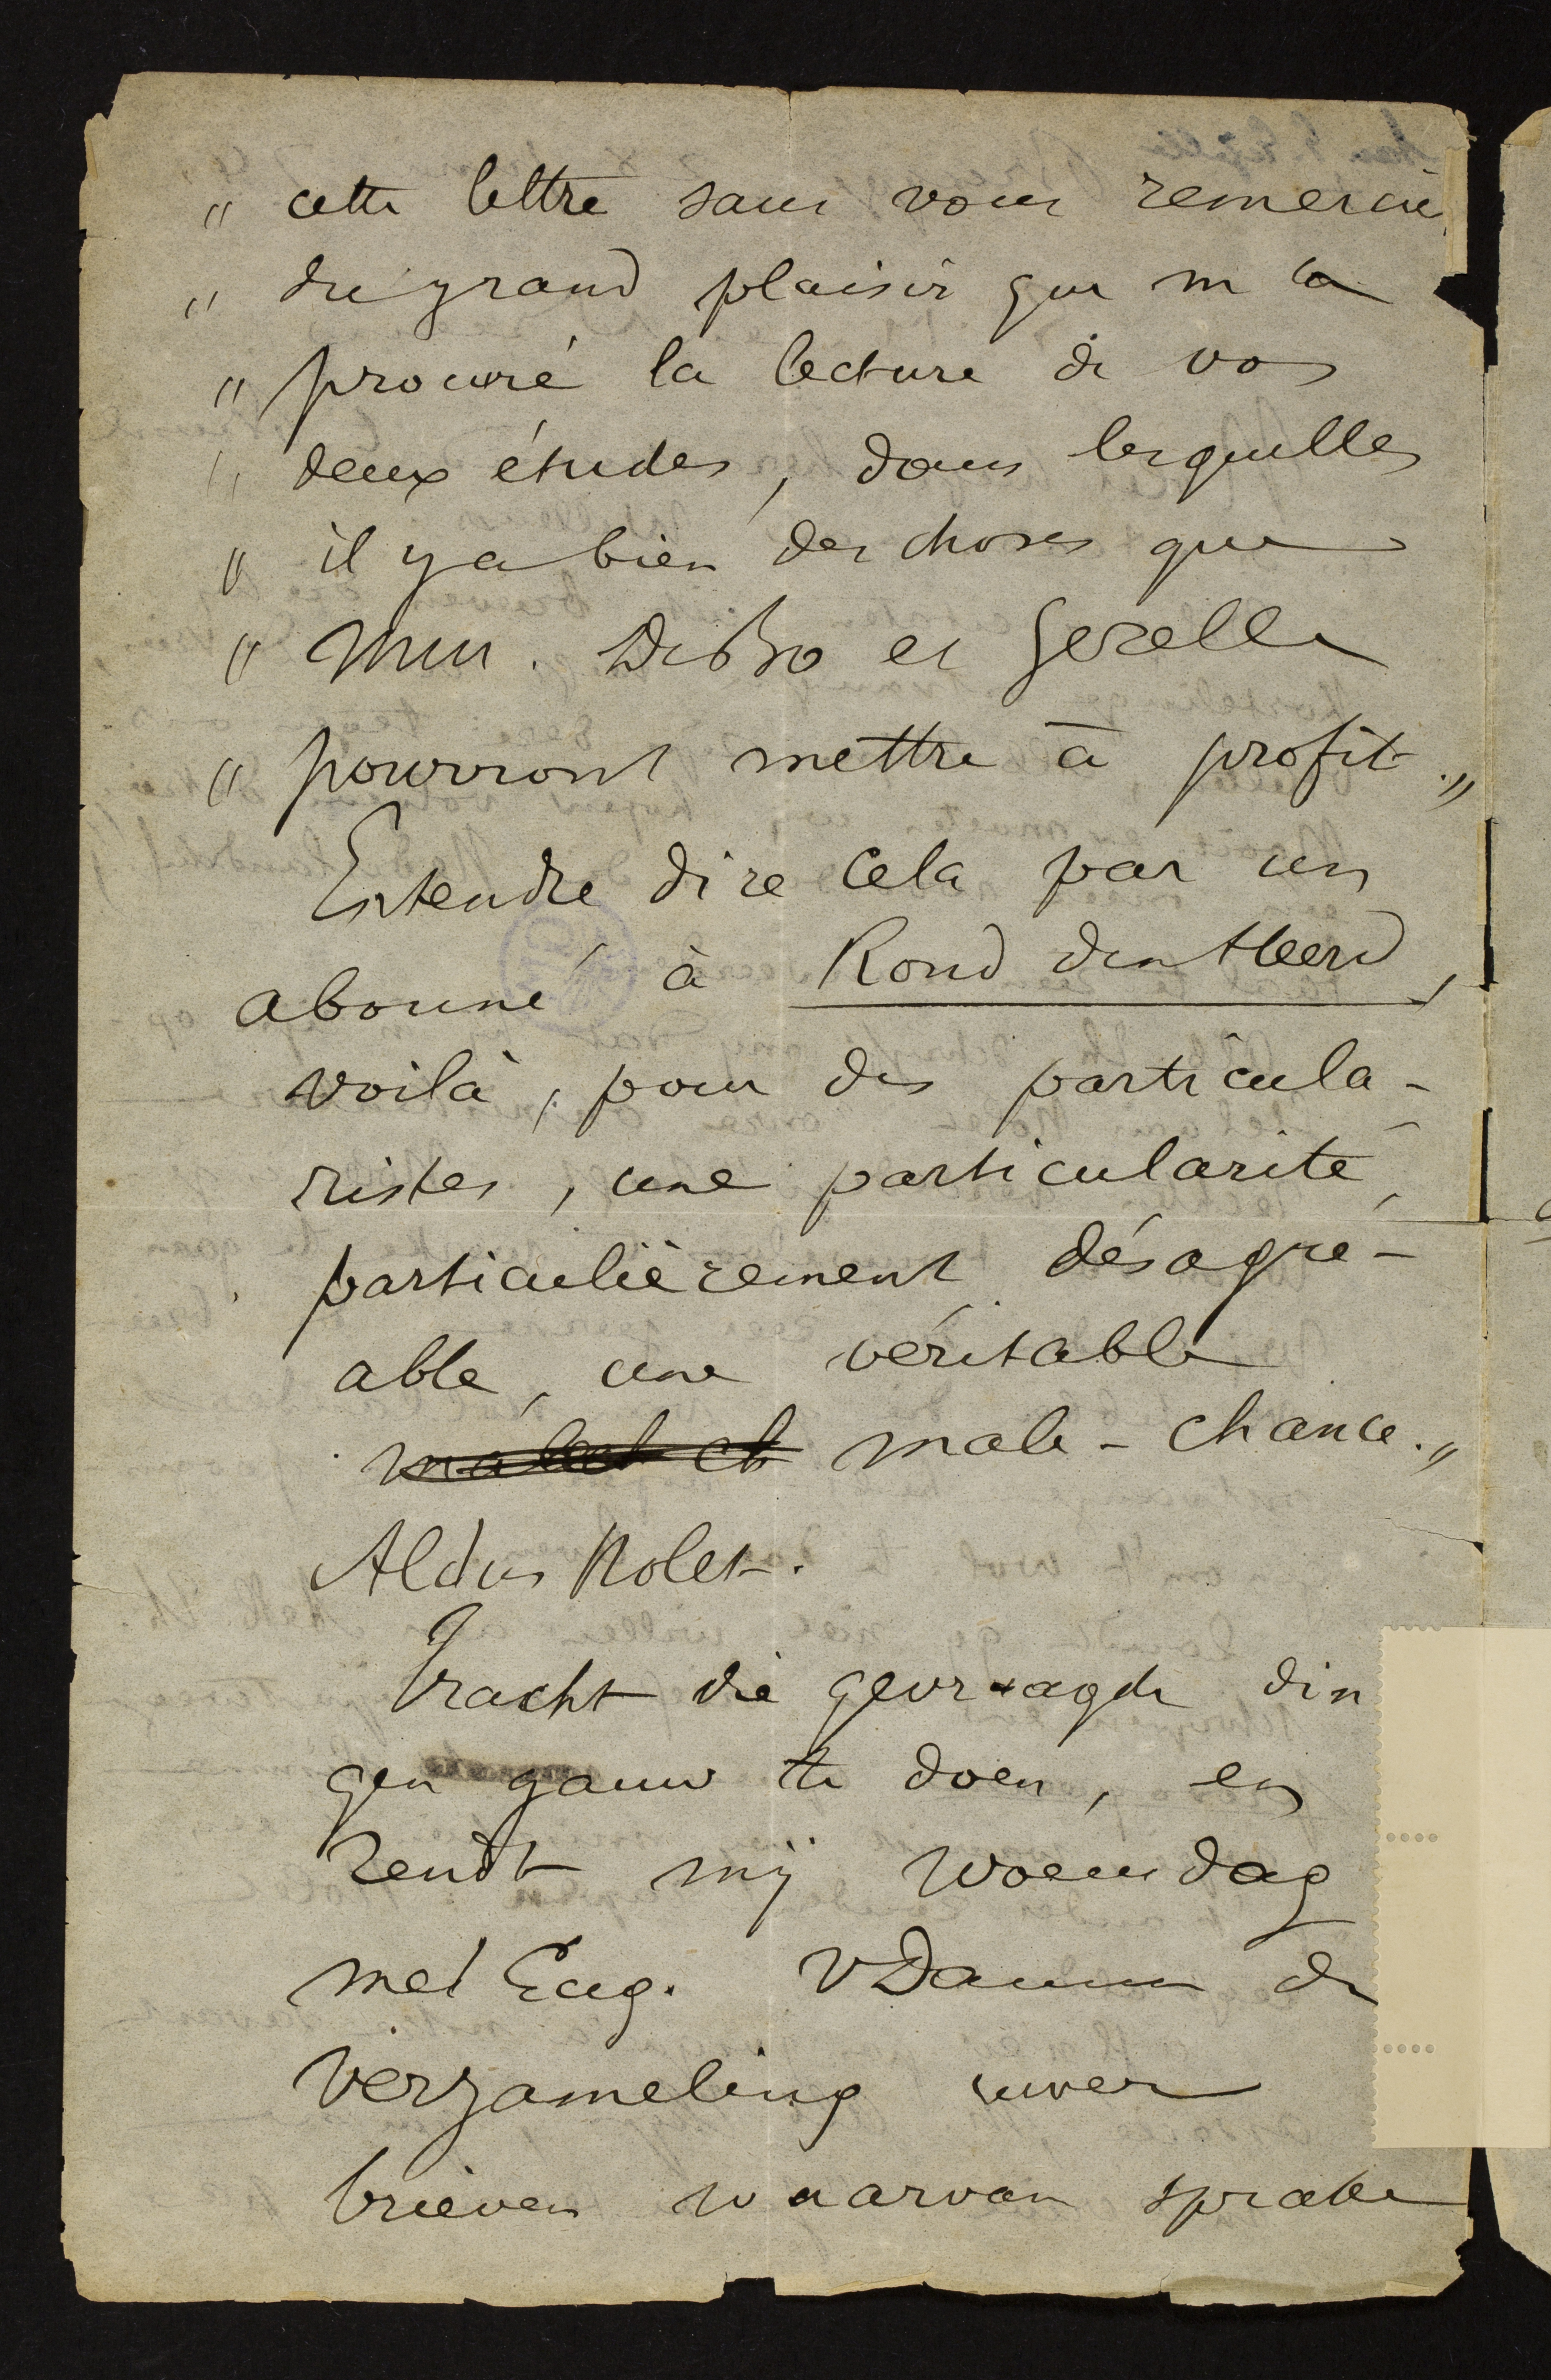 " cette lettre sans vous remercier
" du grand plaisir que m'a
" procuré la lecture de vos
" deux études, dans lesquelles
" il y a bien des choses que
" Mrs. DeBo et Gezelle
" pourront mettre à profit."
Entendre dire cela par un
abonné à Rond den Heerd,
voilà, pour des particula-
ristes, une particularité,
particulièrement désagré-
able, une véritable
male-chance."
Aldus Nolet.
Tracht die gevraagde din
gen gauw te doen, en
zendt mij woensdag
met Eug. VDamme de
verzameling uwer
brieven waarvan sprake